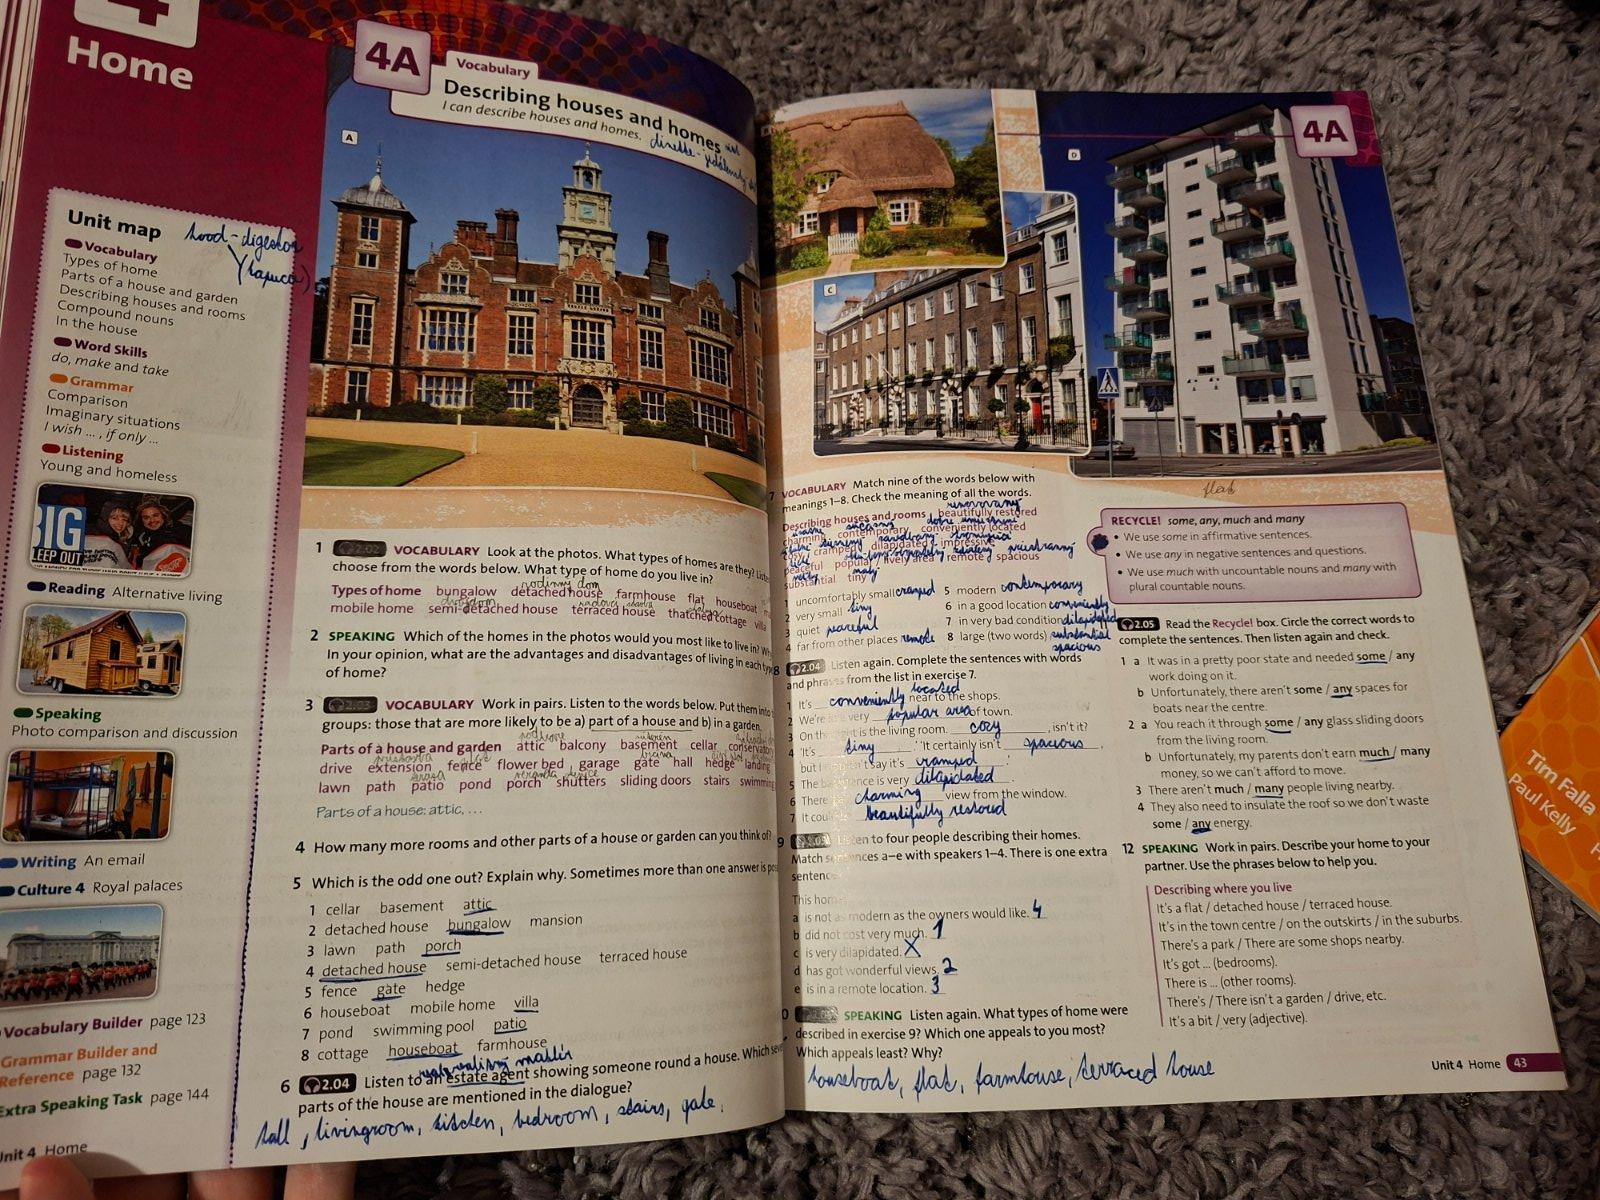 Home
4A
Vocabulary
Describing houses and homes
I can describe houses and homes.
A
Unit map
Vocabulary
Types of home
Parts of a house and garden
Describing houses and rooms
Compound nouns
In the house
Word Skills
do, make and take
Grammar
Comparison
Imaginary situations
I wish ... , if only ...
Listening
Young and homeless
BIG
LEEP OUT
Reading Alternative living
Speaking
Photo comparison and discussion
Writing An email
Culture 4 Royal palaces
Vocabulary Builder page 123
Grammar Builder and
Reference page 132
Extra Speaking Task page 144
Unit 4 Home
1 2.02 VOCABULARY Look at the photos. What types of homes are they?
choose from the words below. What type of home do you live in?
rodinný dom
Types of home bungalow detached house farmhouse flat houseboat
mobile home semi-detached house terraced house thatched cottage villa
2 SPEAKING Which of the homes in the photos would you most like to live in?
In your opinion, what are the advantages and disadvantages of living in each
of home?
3 2.03 VOCABULARY Work in pairs. Listen to the words below. Put them into
groups: those that are more likely to be a) part of a house and b) in a garden.
Parts of a house and garden attic balcony basement cellar conservatory
drive extension fence flower bed garage gate hall hedge landing
lawn path patio pond porch shutters sliding doors stairs swimming
Parts of a house: attic, ...
4 How many more rooms and other parts of a house or garden can you think of?
5 Which is the odd one out? Explain why. Sometimes more than one answer is
1 cellar basement attic
2 detached house bungalow mansion
3 lawn path porch
4 detached house semi-detached house terraced house
5 fence gate hedge
6 houseboat mobile home villa
7 pond swimming pool patio
8 cottage houseboat farmhouse
6 2.04 Listen to an estate agent showing someone round a house. Which
parts of the house are mentioned in the dialogue?
hall, livingroom, kitchen, bedroom, stairs, gate,
4A
D
C
flat
7 VOCABULARY Match nine of the words below with
meanings 1–8. Check the meaning of all the words.
Describing houses and rooms beautifully restored
charming contemporary conveniently located
cosy cramped dilapidated impressive
peaceful popular / lively area remote spacious
substantial tiny
1 uncomfortably small cramped
2 very small tiny
3 quiet peaceful
4 far from other places remote
5 modern contemporary
6 in a good location conveniently
7 in very bad condition dilapidated
8 large (two words) substantial
spacious
8 2.04 Listen again. Complete the sentences with words
and phrases from the list in exercise 7.
1 It's conveniently located near to the shops.
2 We're very popular area of town.
3 On the right is the living room. cosy , isn't it?
4 'It's tiny .' 'It certainly isn't spacious ,
but I say it's cramped .'
5 The is very dilapidated .
6 There charming view from the window.
7 It could beautifully restored
9 Listen to four people describing their homes.
Match sentences a–e with speakers 1–4. There is one extra
sentence.
This home
a is not as modern as the owners would like. 4
b did not cost very much. 1
c is very dilapidated. X
d has got wonderful views. 2
e is in a remote location. 3
SPEAKING Listen again. What types of home were
described in exercise 9? Which one appeals to you most?
Which appeals least? Why?
houseboat, flat, farmhouse, terraced house
RECYCLE! some, any, much and many
• We use some in affirmative sentences.
• We use any in negative sentences and questions.
• We use much with uncountable nouns and many with
plural countable nouns.
2.05 Read the Recycle! box. Circle the correct words to
complete the sentences. Then listen again and check.
1 a It was in a pretty poor state and needed some / any
work doing on it.
b Unfortunately, there aren't some / any spaces for
boats near the centre.
2 a You reach it through some / any glass sliding doors
from the living room.
b Unfortunately, my parents don't earn much / many
money, so we can't afford to move.
3 There aren't much / many people living nearby.
4 They also need to insulate the roof so we don't waste
some / any energy.
12 SPEAKING Work in pairs. Describe your home to your
partner. Use the phrases below to help you.
Describing where you live
It's a flat / detached house / terraced house.
It's in the town centre / on the outskirts / in the suburbs.
There's a park / There are some shops nearby.
It's got ... (bedrooms).
There is ... (other rooms).
There's / There isn't a garden / drive, etc.
It's a bit / very (adjective).
Unit 4 Home 43
Tim Falla
Paul Kelly